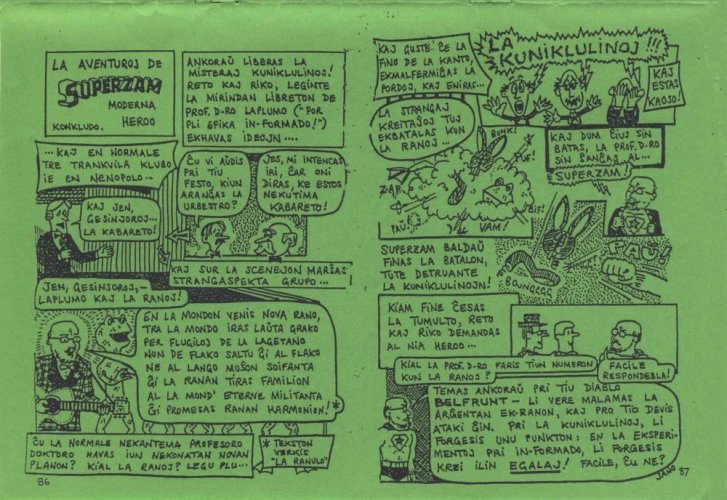 LA AVENTUROJ DE
SUPERZAM
MODERNA
HEROO
KONKLUDO.
ANKORAŬ LIBERAS LA
MISTERAJ KUNIKLULINOJ!
RETO KAJ RIKO, LEGINTE
LA MIRINDAN LIBRETON DE
PROF. D-RO LAPLUMO ("POR
PLI EFIKA IN-FORMADO!")
EKHAVAS IDEOJN....
...KAJ EN NORMALE
TRE TRANKVILA KLUBO
IE EN NENOPOLO...
KAJ JEN,
GESINJOROJ...
LA KABARETO!
ĈU VI AŬDIS
PRI TIU
FESTO, KIUN
ARANĜAS LA
URBESTRO?
JES, MI INTENCAS
IRI, ĈAR ONI
DIRAS, KE ESTOS
NEKUTIMA
KABARETO!
KAJ SUR LA SCENEJON MARŜAS
STRANGASPEKTA GRUPO...
JEN, GESINJOROJ,-
LAPLUMO KAJ LA RANOJ!
EN LA MONDON VENIS NOVA RANO,
TRA LA MONDO IRAS LAŬTA GRAKO
PER FLUGILOJ DE LA LAGETANO
NUN DE FLAKO SALTU ĜI AL FLAKO
NE AL LANGO MUŜON SOIFANTA
ĜI LA RANAN TIRAS FAMILION
AL LA MOND' ETERNE MILITANTA
ĜI PROMESAS RANAN HARMONION! *
ĈU LA NORMALE NEKANTEMA PROFESORO
DOKTORO HAVAS IUN NEKONATAN NOVAN
PLANON? KIAL LA RANOJ? LEGU PLU...
* TEKSTON
VERKIS
"LA RANULO"
86
KAJ ĜUSTE ĈE LA
FINO DE LA KANTO,
EKMALFERMIĜAS LA
PORDOJ, KAJ ENIRAS...
LA
KUNIKLULINOJ!!!
KAJ
ESTAS
KAOSO!
LA STRANGAJ
KREITAĴOJ TUJ
EKBATALAS KUN
LA RANOJ...
BONK!
PUF!
ZAP
PAŬ
BIF!
VAM!
KAJ DUM ĈIUJ SIN
BATAS, LA PROF. D-RO
SIN ŜANĜAS AL...
SUPERZAM
SUPERZAM BALDAŬ
FINAS LA BATALON,
TUTE DETRUANTE
LA KUNIKLULINOJN!
PAŬ!
BOJNGGGG
KIAM FINE ĈESAS
LA TUMULTO, RETO
KAJ RIKO DEMANDAS
AL NIA HEROO...
KIAL LA PROF. D-RO FARIS TIUN NUMERON
KUN LA RANOJ?
FACILE
RESPONDEBLA!
TEMAS ANKORAŬ PRI TIU DIABLO
BELFRUNT - LI VERE MALAMAS LA
ARĜENTAN EK-RANON, KAJ PRO TIO DEVIS
ATAKI ĜIN. PRI LA KUNIKLULINOJ, LI
FORGESIS UNU PUNKTON: EN LA EKSPERI-
MENTOJ PRI IN-FORMADO, LI FORGESIS
KREI ILIN EGALAJ! FACILE, ĈU NE?
JANO 87